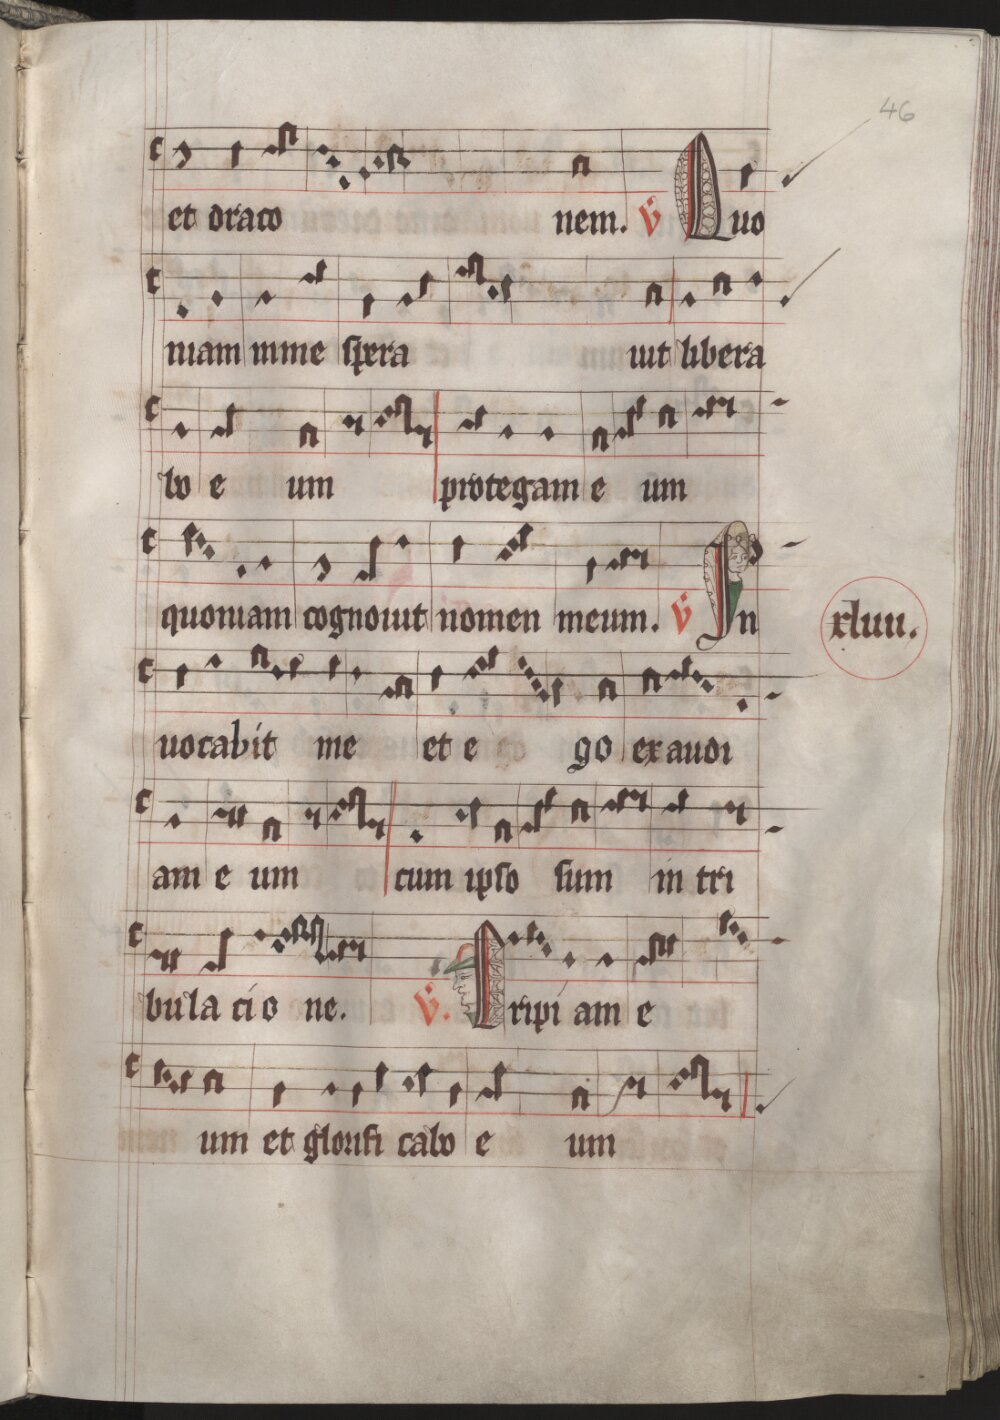 46
et draco nem. V Quo
niam in me spera uit libera
bo e um protegam e um
quoniam cognouit nomen meum. V In
xluii.
uocabit me et e go exaudi
am e um cum ipso sum in tri
bula cio ne. V. Eripi am e
um et glorifi cabo e um